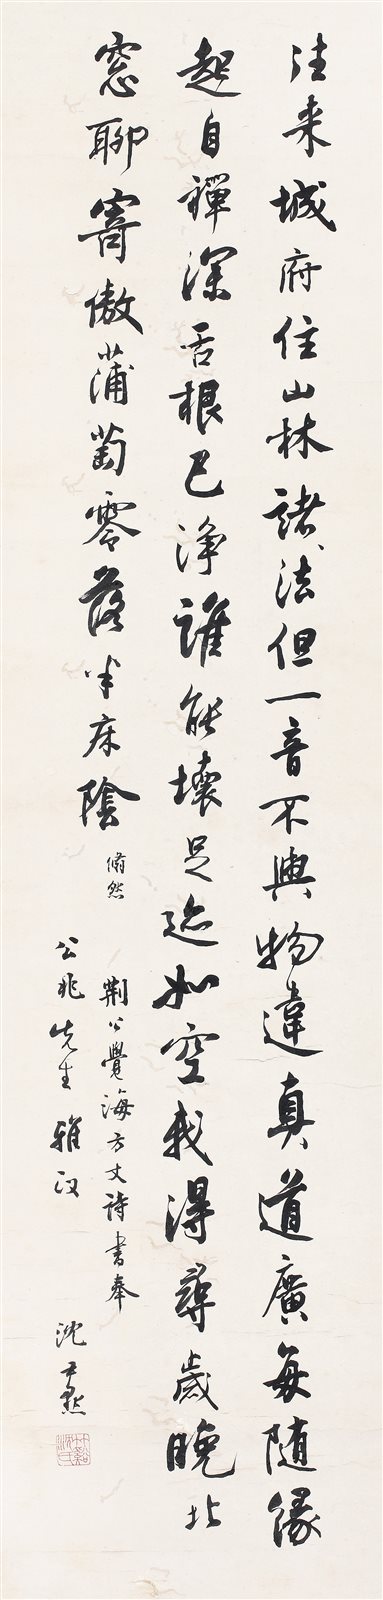 往来城府住山林諸法但一音不與物違真道廣每随緣
起自禪深舌根已淨誰能壞足迹如空我得尋歲晚北
窓聊寄傲蒲萄零落半床陰 翛然
荆公覺海方丈詩書奉
公兆先生雅政 沈尹默
竹谿沈氏